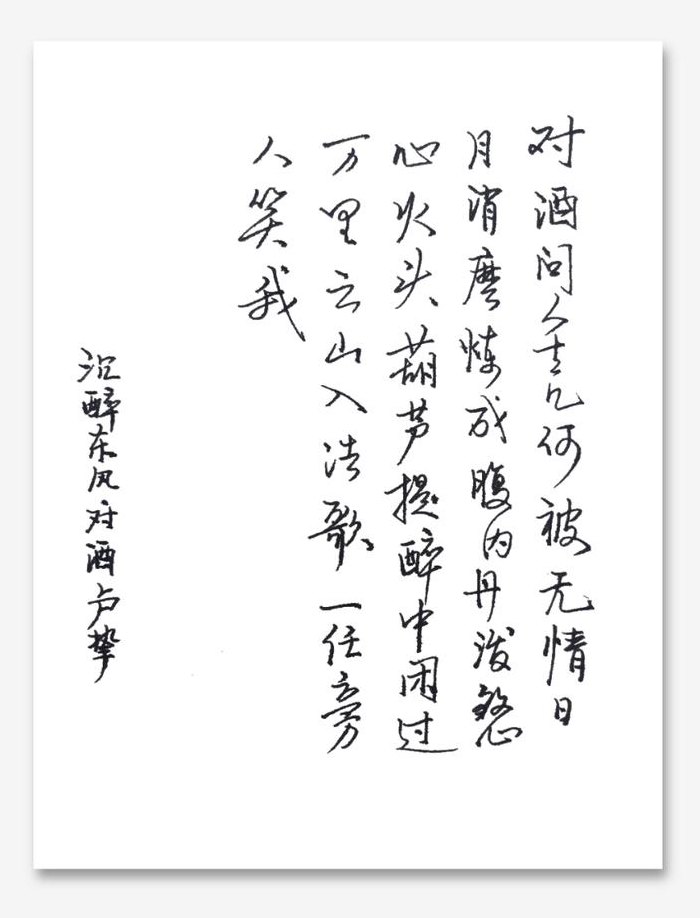 对酒问人生几何被无情日
月消磨炼成腹内丹泼煞
心火头葫芦提醉中闲过
万里云山入浩歌一任旁
人笑我
沉醉东风对酒卢挚